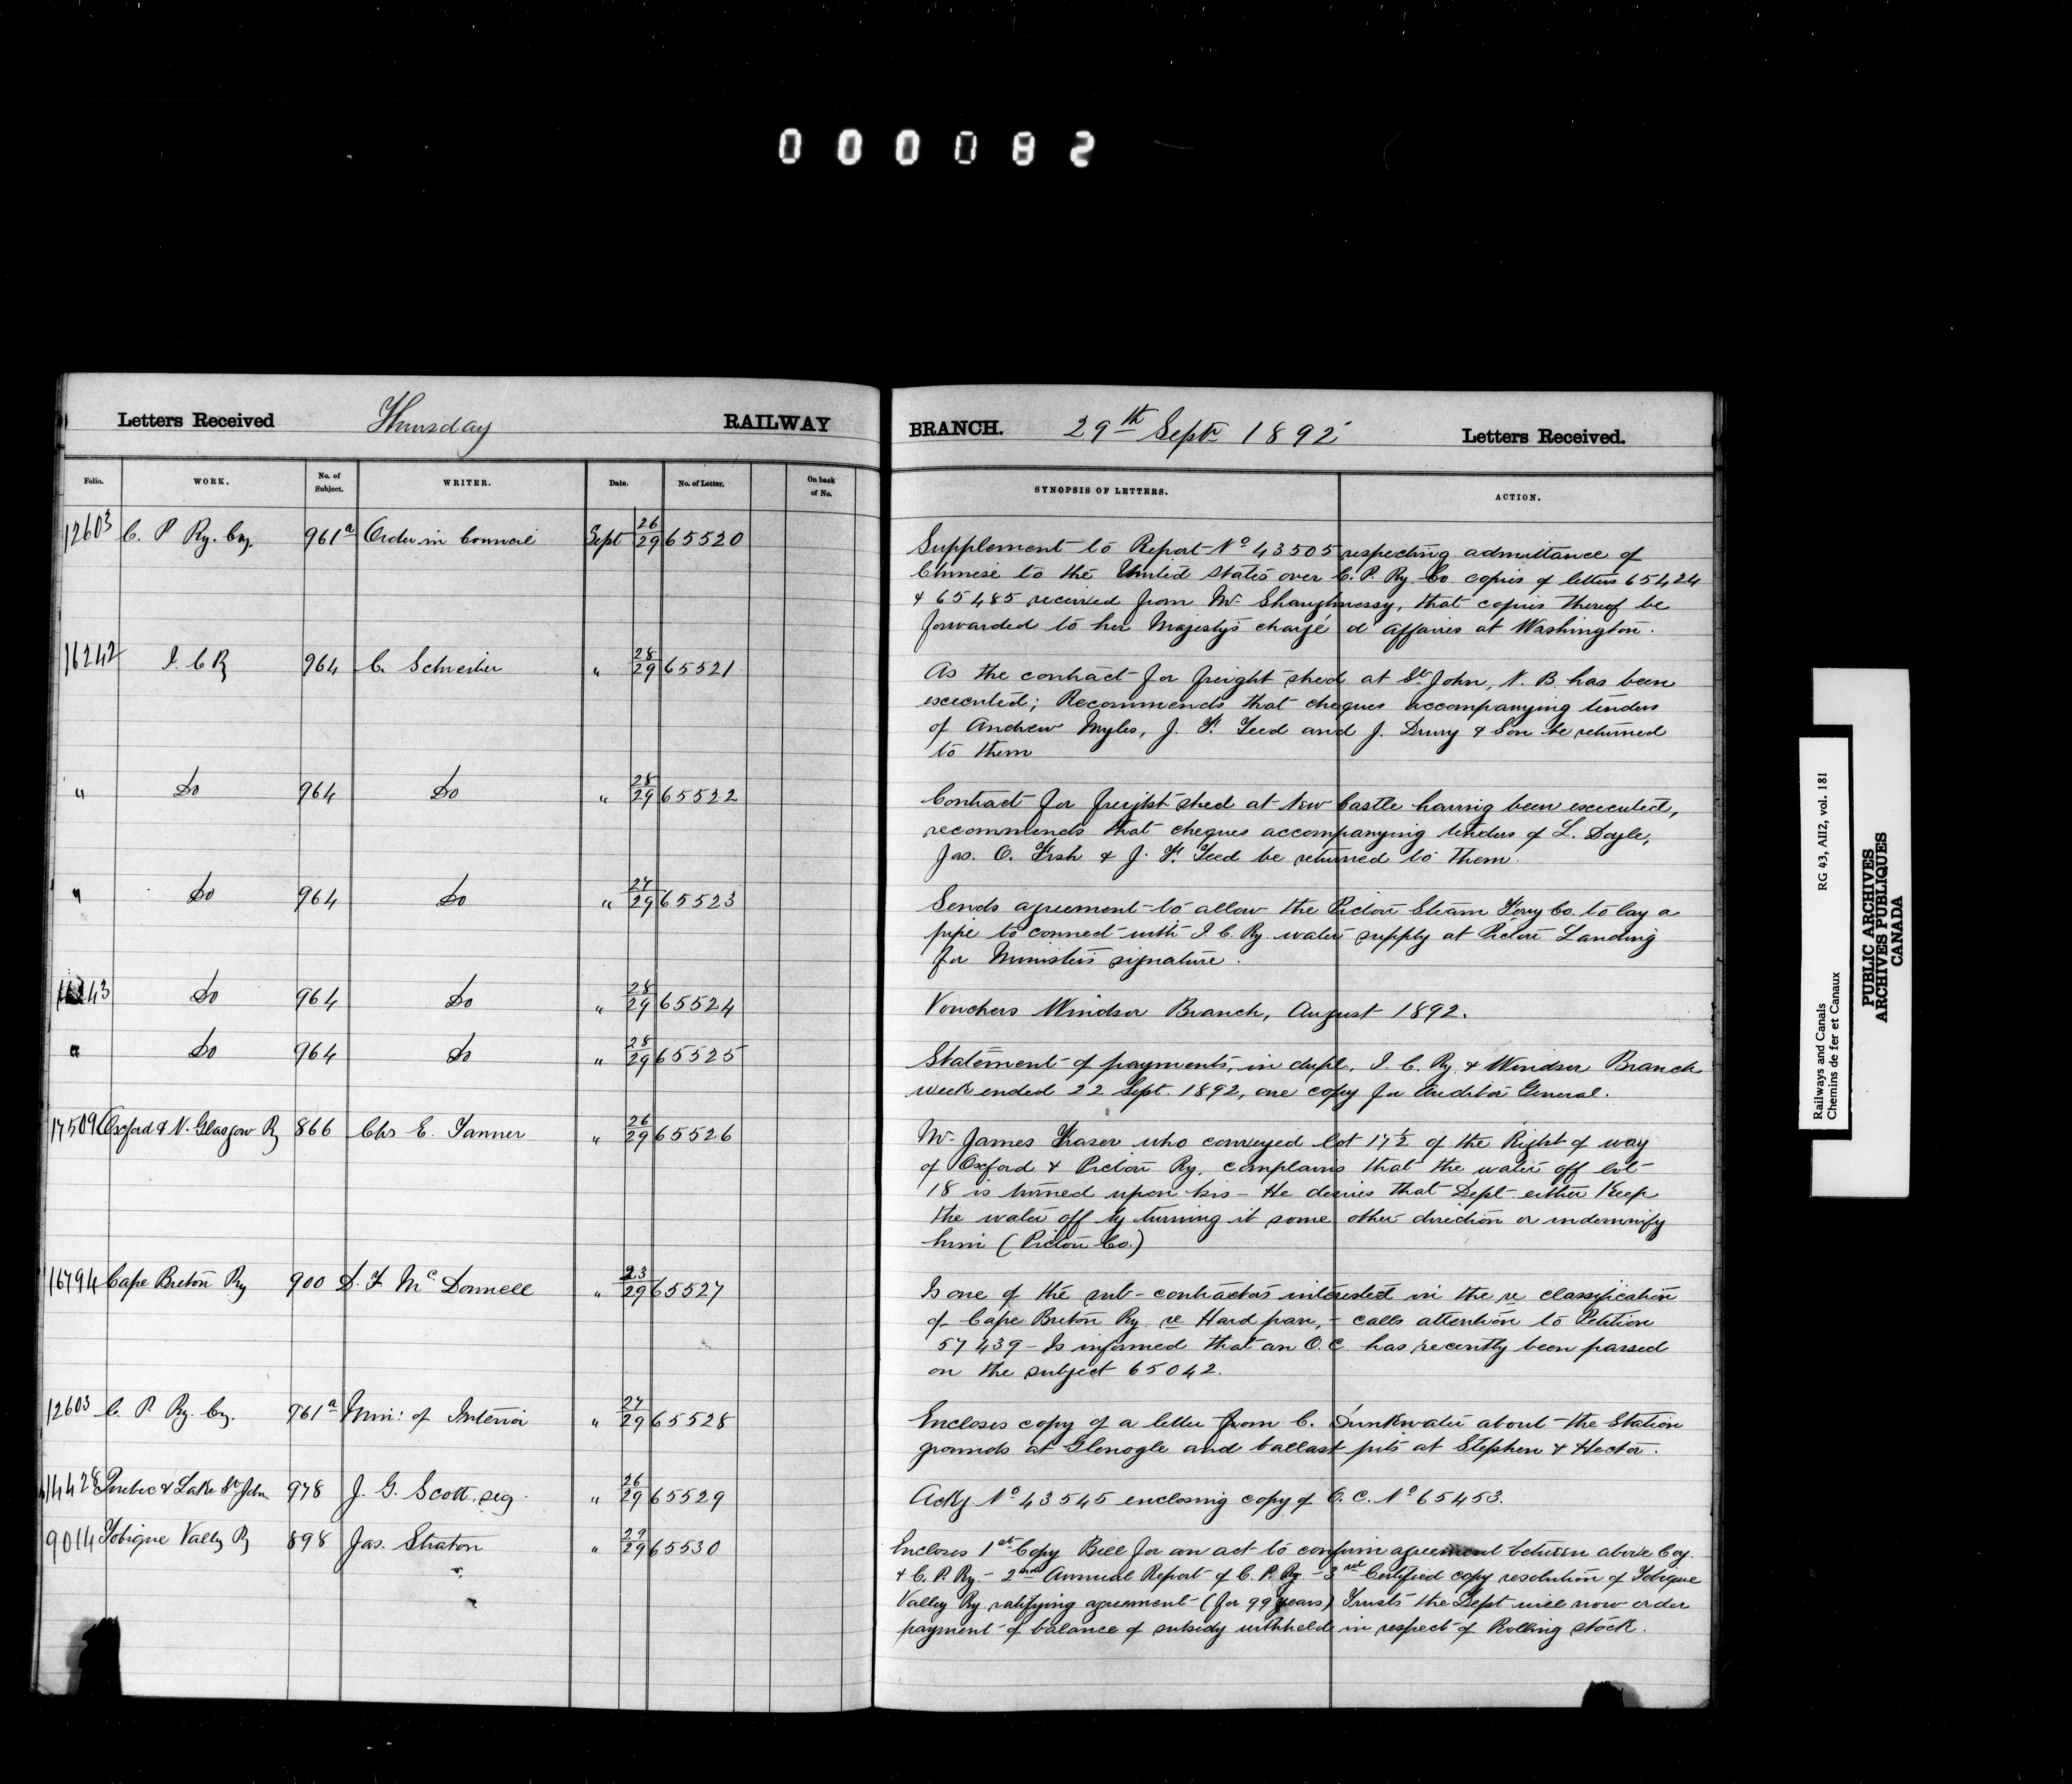 000082
Letters Received Thursday RAILWAY BRANCH. 29th Septr 1892 Letters Received.
Folio. WORK. No. of Subject. WRITER. Date. No. of Letter. On back of No. SYNOPSIS OF LETTERS. ACTION.
12603 C. P. Ry. Coy. 961a Order in Council Sept 26/29 65520
Supplement to Report No 43505 respecting admittance of
Chinese to the United States over C. P. Ry Co copies of letters 65424
& 65485 received from Mr Shaughnessy, that copies thereof be
forwarded to her Majesty's chargé d'affaires at Washington.
16242 I. C R 964 C. Schreiber " 28/29 65521
As the contract for freight shed at St John, N. B. has been
excecuted; Recommends that cheques accompanying tenders
of Andrew Myles, J. F. Teed and J. Drury & Son be returned
to them
" Do 964 Do " 28/29 65522
Contract for freight shed at New Castle having been excecuted,
recommends that cheques accompanying tenders of L. Doyle,
Jas. O. Fish & J. F. Teed be returned to them.
" Do 964 Do " 27/29 65523
Sends agreement to allow the Pictou Steam Ferry Co. to lay a
pipe to connect with I. C. Ry. water supply at Pictou Landing
for Ministers signature.
43 Do 964 Do " 28/29 65524
Vouchers Windsor Branch, August 1892.
" Do 964 Do " 28/29 65525
Statement of payments, in dupl. I. C. Ry. & Windsor Branch
week ended 22 Sept. 1892, one copy for Auditor General.
17509 Oxford & N. Glasgow Ry 866 Chs E. Tanner " 26/29 65526
Mr James Fraser who conveyed lot 17½ of the Right of way
of Oxford & Pictou Ry. complains that the water off lot
18 is turned upon his - He desires that Dept either Keep
the water off by turning it some other direction or indemnify
him (Pictou Co.)
16794 Cape Breton Ry 900 D. F McDonnell " 23/29 65527
Is one of the sub-contractors interested in the re classification
of Cape Breton Ry. re Hard pan, - calls attention to Petition
57439 - Is informed that an O. C. has recently been passed
on the subject 65042.
12603 C. P. Ry. Coy. 961a Min: of Interior " 27/29 65528
Encloses copy of a letter from C. Drinkwater about the Station
grounds at Glenogle and ballast pits at Stephen & Hector.
14428 Quebec & Lake St John 978 J. G. Scott, seq. " 26/29 65529
Ackg No 43545 enclosing copy of O. C. No 65453.
9014 Tobique Valley Ry 898 Jas. Straton " 29/29 65530
Encloses 1st Copy Bill for an act to confirm agreement between above Coy.
& C. P. Ry. - 2nd Annual Report of C. P. Ry - 3rd Certified copy resolution of Tobique
Valley Ry ratifying agreement (for 99 years) Trusts the Dept will now order
payment of balance of subsidy withheld in respect of Rolling stock.
Railways and Canals RG 43, AII2, vol. 181
Chemins de fer et Canaux
PUBLIC ARCHIVES
ARCHIVES PUBLIQUES
CANADA